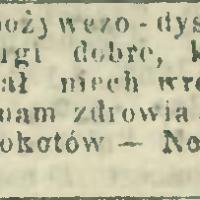 pożywczo-dys
ługi dobre, k
ał niech wró
nam zdrowia
okotów — No